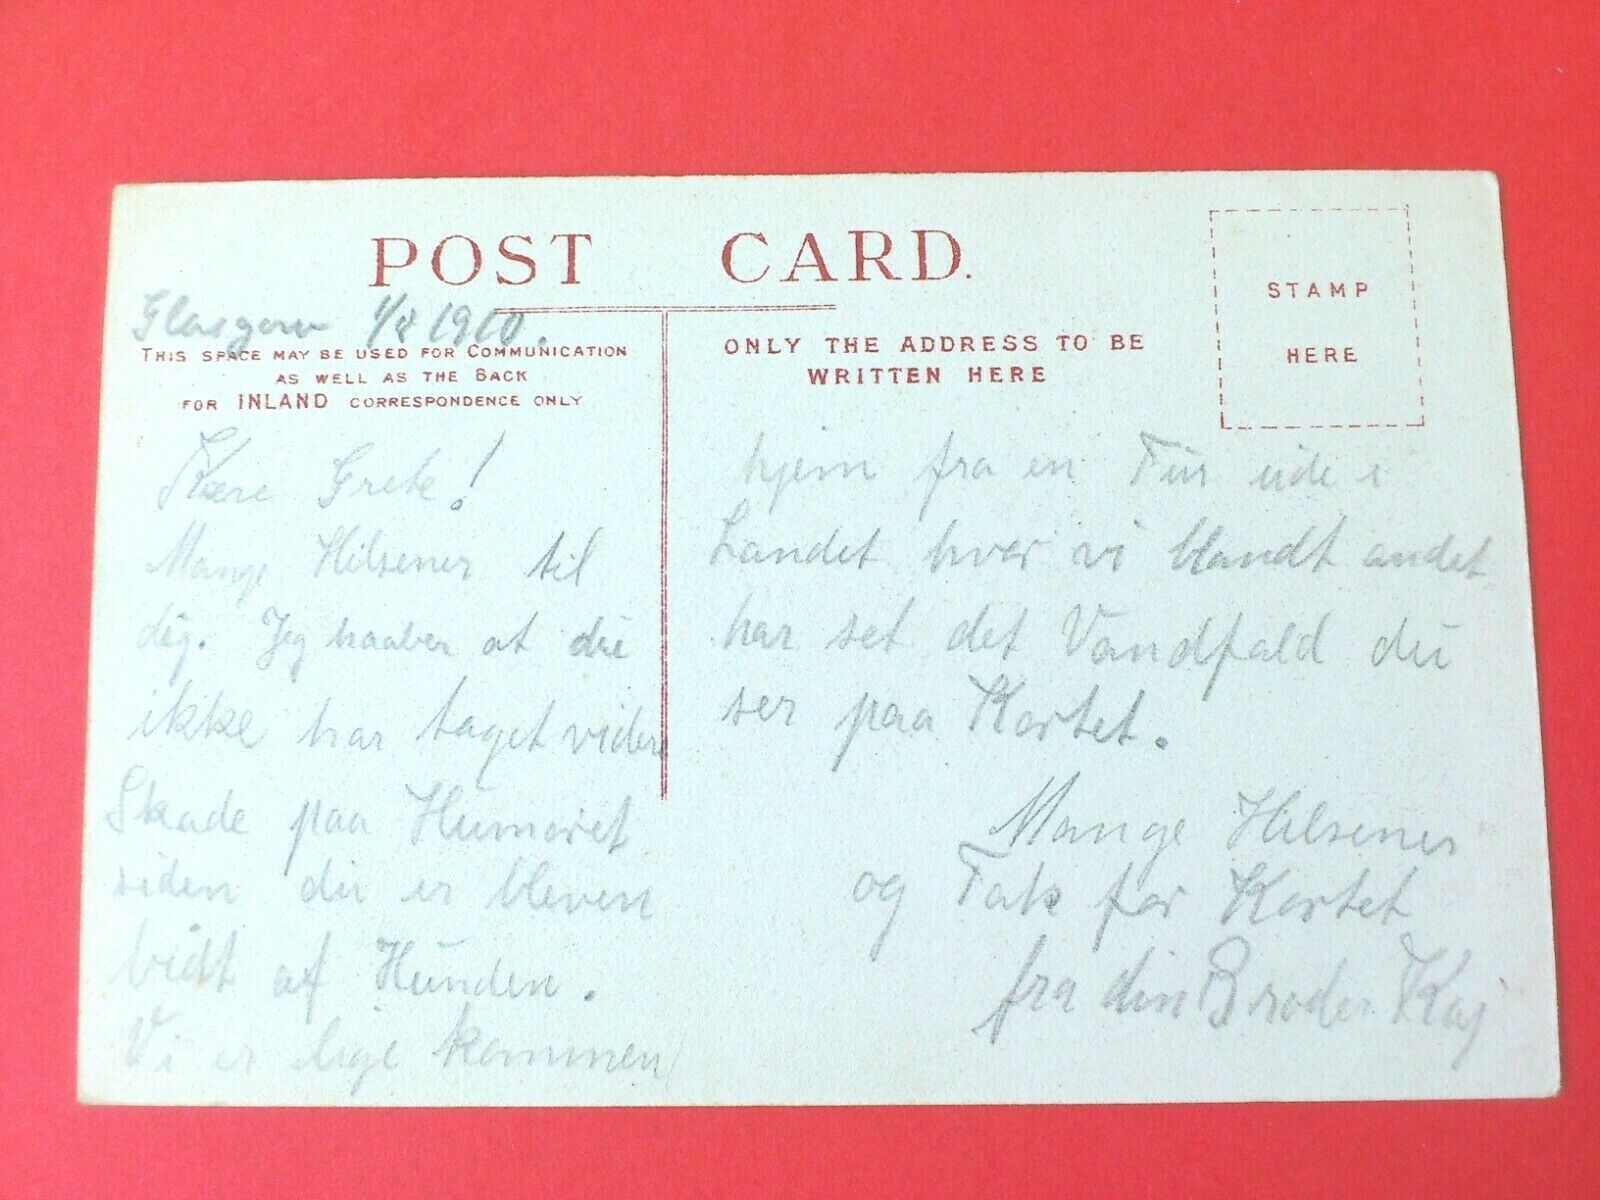 POST CARD.
Glasgow 1/8 1910.
THIS SPACE MAY BE USED FOR COMMUNICATION
AS WELL AS THE BACK
FOR INLAND CORRESPONDENCE ONLY
ONLY THE ADDRESS TO BE
WRITTEN HERE
STAMP
HERE
Kære Grete!
Mange Hilsener til
dig. Jeg haaber at du
ikke har taget videre
Skade paa Humøret
siden du er bleven
bidt af Hunden.
Vi er lige kommen
hjem fra en Tur ude i
Landet hvor vi blandt andet
har set det Vandfald du
ser paa Kortet.
Mange Hilsener
og Tak for Kortet
fra din Broder Kaj